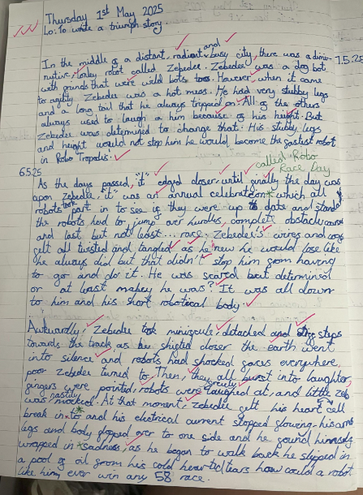 Thursday 1st May 2025
Lo: To write a triumph story.
In the middle of a distant, radiant, busy city, there was a dimin-
nutive, robot called Zebedee. Zebedee was a dog bot
with friends that were wild bots too. However when it came
to agility Zebedee was a hot mess. He had very stubby legs
and a long tail that he always tripped on. All of the others
always used to laugh at him because of his height. But
Zebedee was determined to change that. His stubby legs
and height would not stop him he would become the fastest robot
in Robo Tropolis.
called Robo
Race Day
As the days passed, "it" edged closer until finally the day was
upon Zebedee. "it" was an annual celebration which all
robots part in to see if they were up to date and
the robots had to jump over hurdles, complete obstacle
and last but not least... race. Zebedee's wires and cogs
felt all twisted and tangled as he knew he would lose like
he always did but that didn't stop him from having
to go and do it. He was scared but determined
or at least maybe he was? It was all down
to him and his short robotical body.
Awkwardly, Zebedee took miniscule, detached and steps
towards the track as he shifted closer the earth went
into silence and robots had shocked faces everywhere,
poor Zebedee turned to. Then, they all burst into laughter
fingers were pointed, robots laughed at, and little zeb
was mocked. At that moment, Zebedee felt his heart cell
break into and his electrical current stopped flowing. his
legs and body flopped over to one side and he found himself
wrapped in sadness, as he began to walk back he slipped in
a pool of oil from his cold tears how could a robot
like him ever win any race.